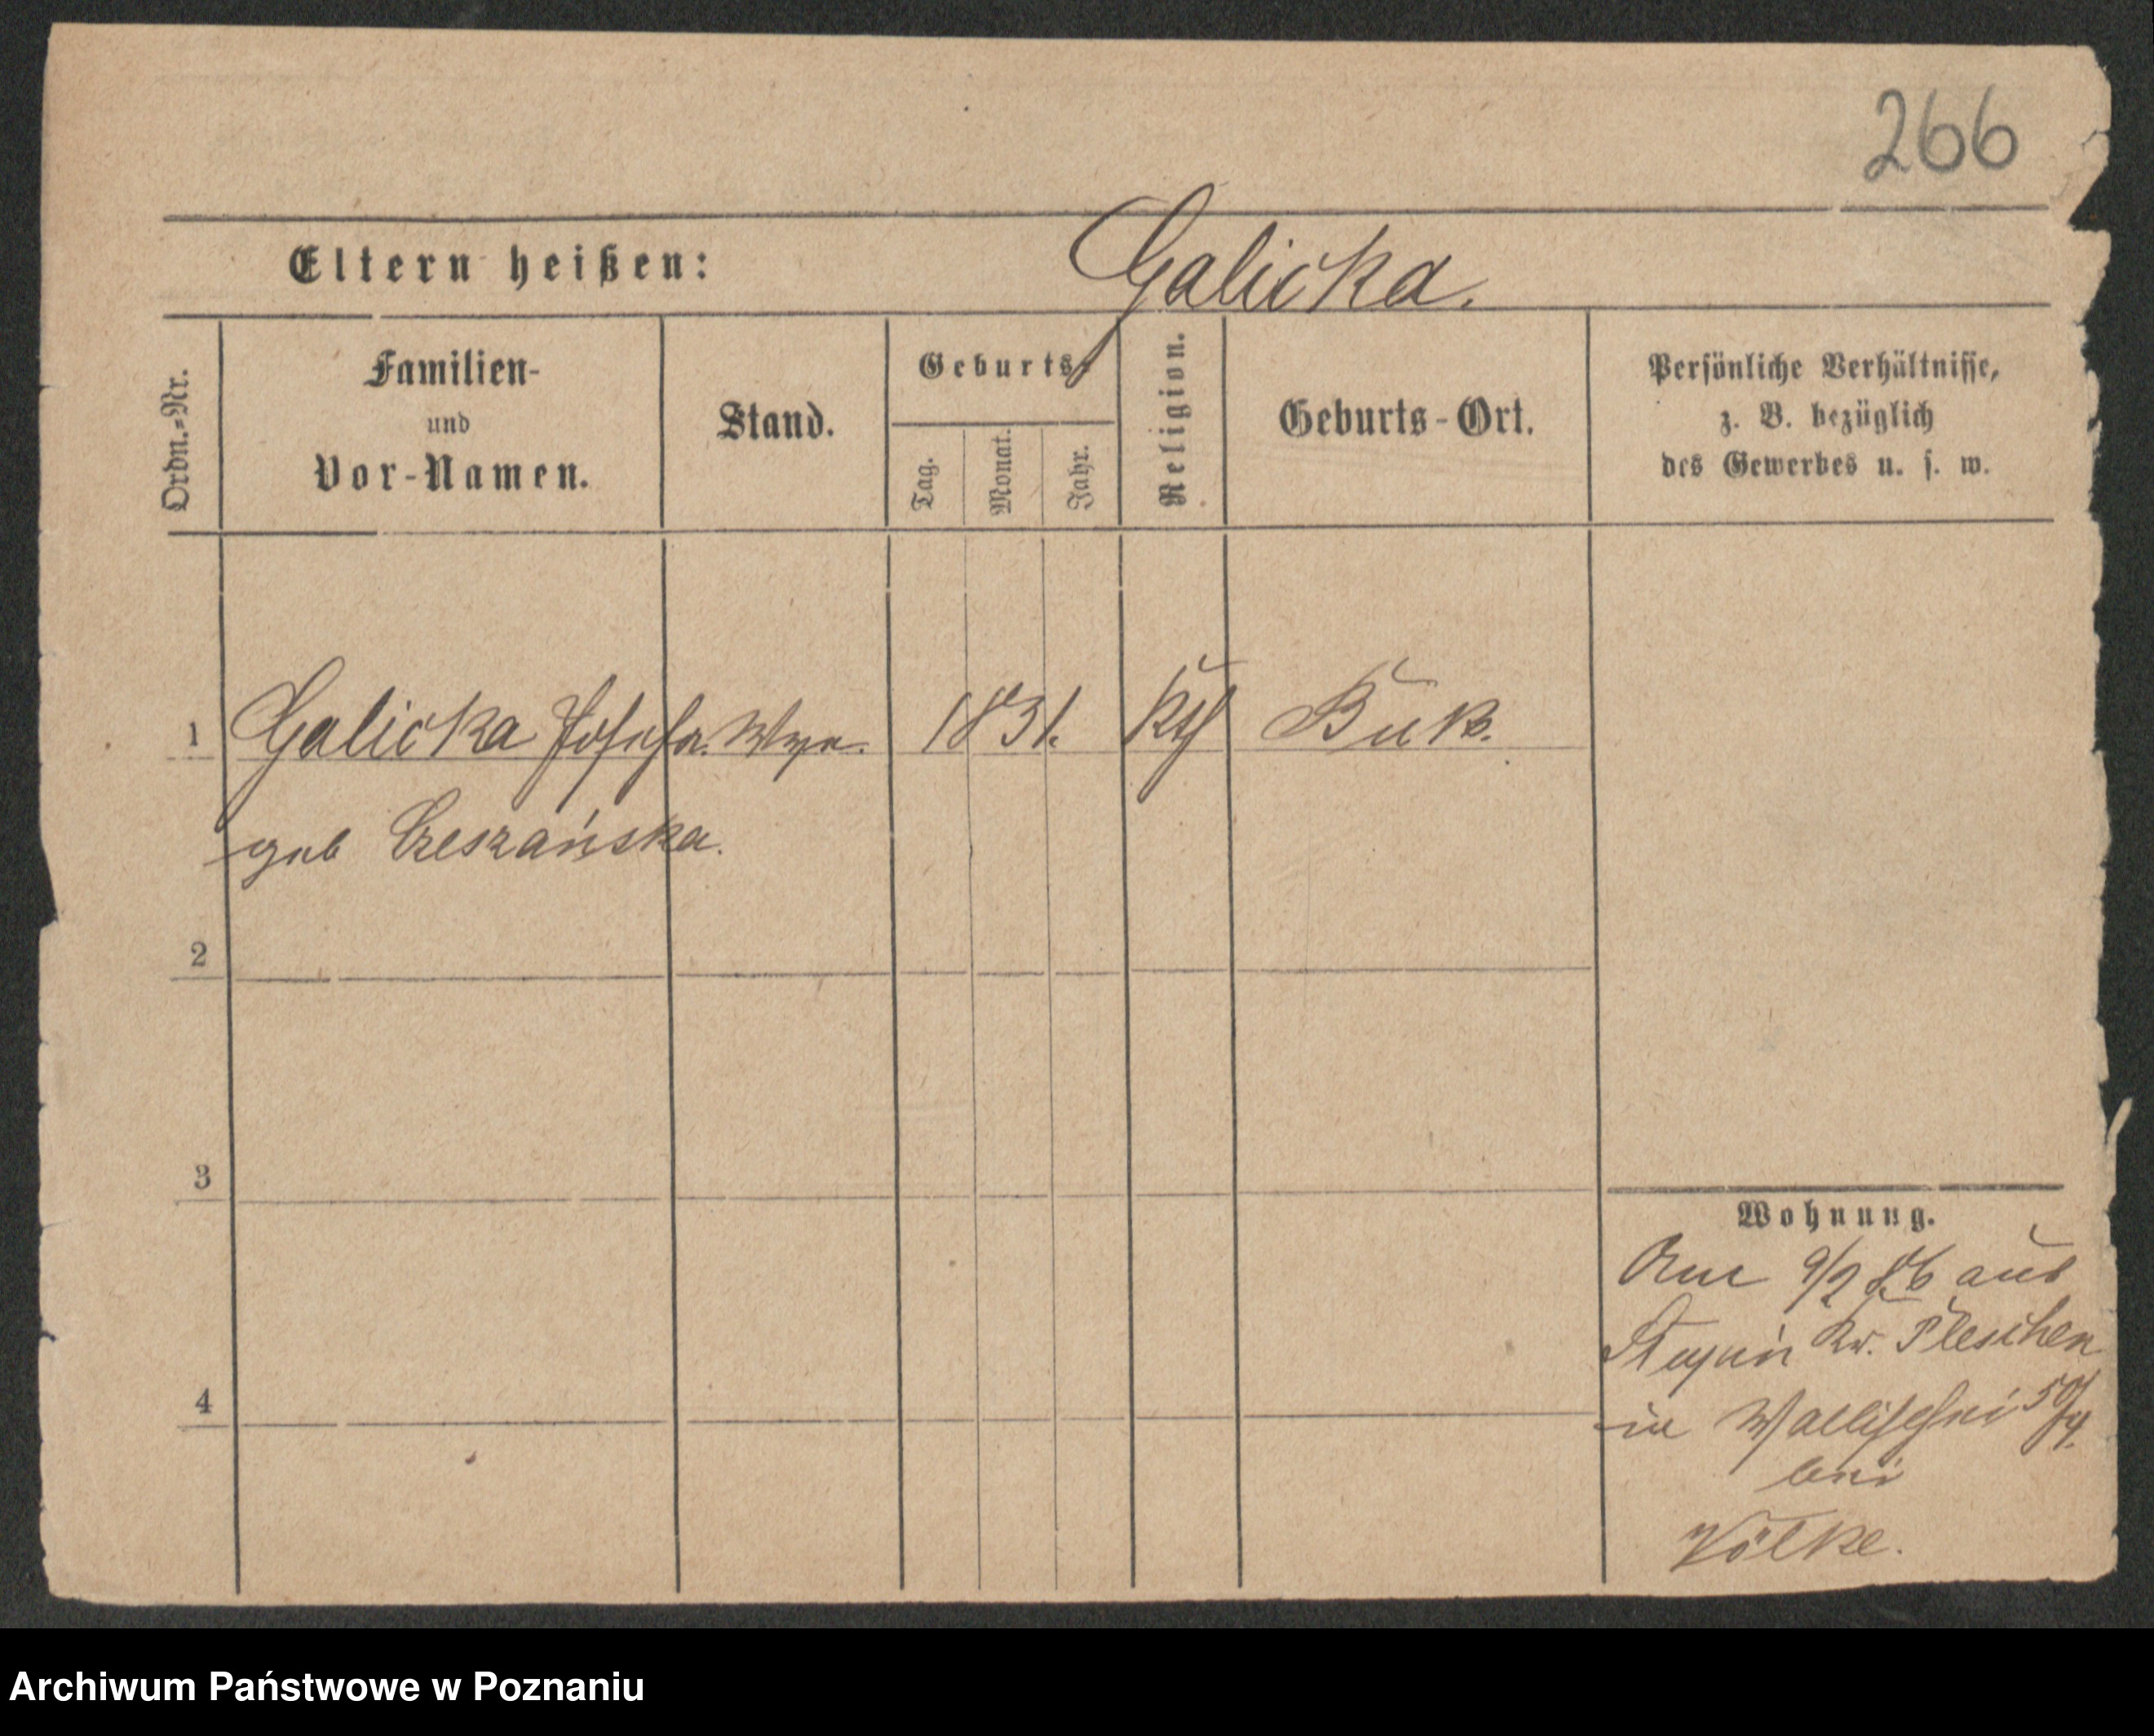 266
Eltern heißen: Galicka.
Ordn.=Nr.
Familien-
und
Vor-Namen.
Stand.
Geburts-
Tag.
Monat.
Jahr.
Religion.
Geburts-Ort.
Persönliche Verhältnisse,
z. B. bezüglich
des Gewerbes u. s. w.
1 Galicka Josefa. Wwe. 1831. Kth Buk.
geb Czeszańska.
2
3
4
Wohnung.
Am 9/2 86 aus
Kr. Pleschen
in Wallischei
bei
Völke.
Archiwum Państwowe w Poznaniu